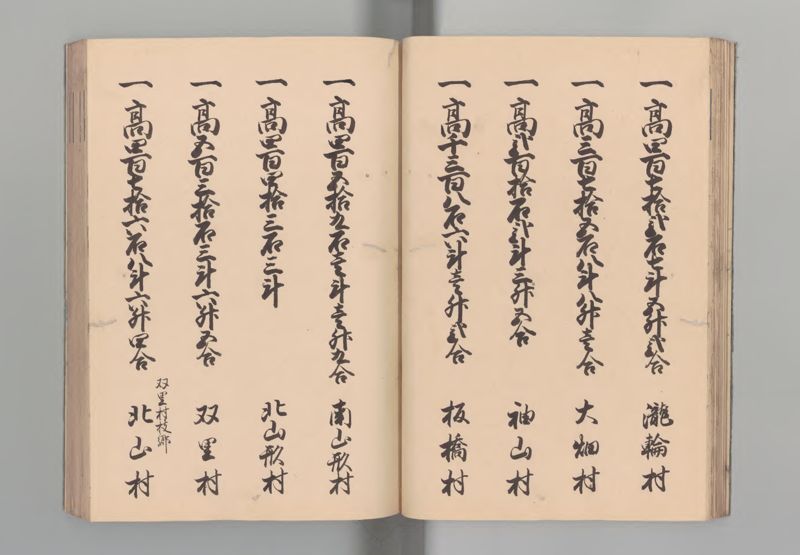 一高四百七拾弐石七斗五升弐合 瀧輪村
一高三百七拾五石八斗八升壱合 大畑村
一高弐百拾石弐斗三升五合 袖山村
一高千三百八石六斗壱升弐合 板橋村
一高四百五拾九石壱斗壱升九合 南山形村
一高四百四拾三石三斗 北山形村
一高五百三拾石三斗六升五合 双里村
双里村枝郷
一高四百七拾六石八斗六升四合 北山村